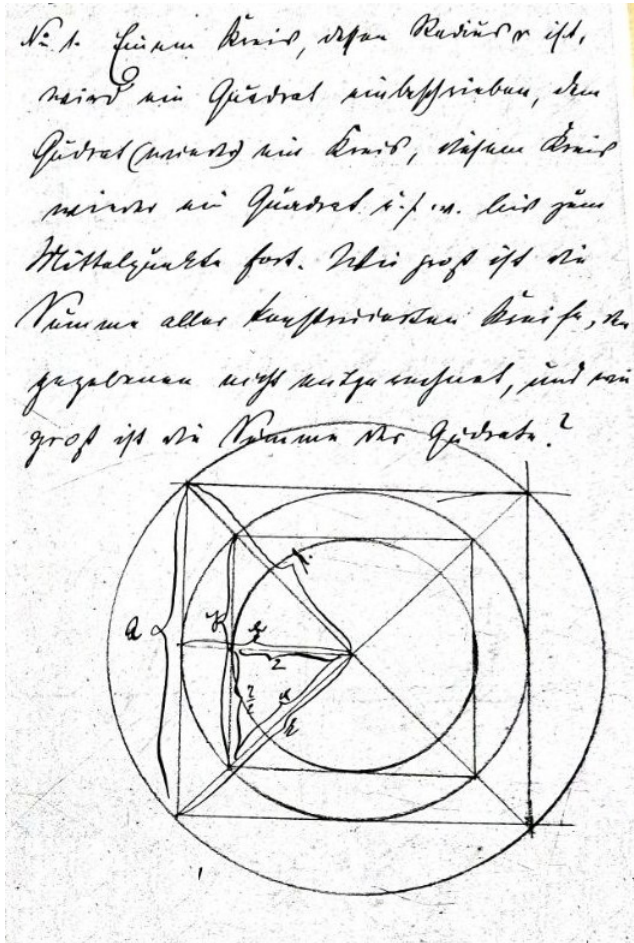 No 1. Einem Kreis, dessen Radius r ist,
wird ein Quadrat einbeschrieben, dem
Qudrat (wieder) ein Kreis, diesem Kreis
wieder ein Quadrat u. s. w. bis zum
Mittelpunkte fort. Wie groß ist die
Summe aller konstruierten Kreise, den
gegebenen nicht mitgerechnet, und wie
groß ist die Summe der Qudrate?
r
a